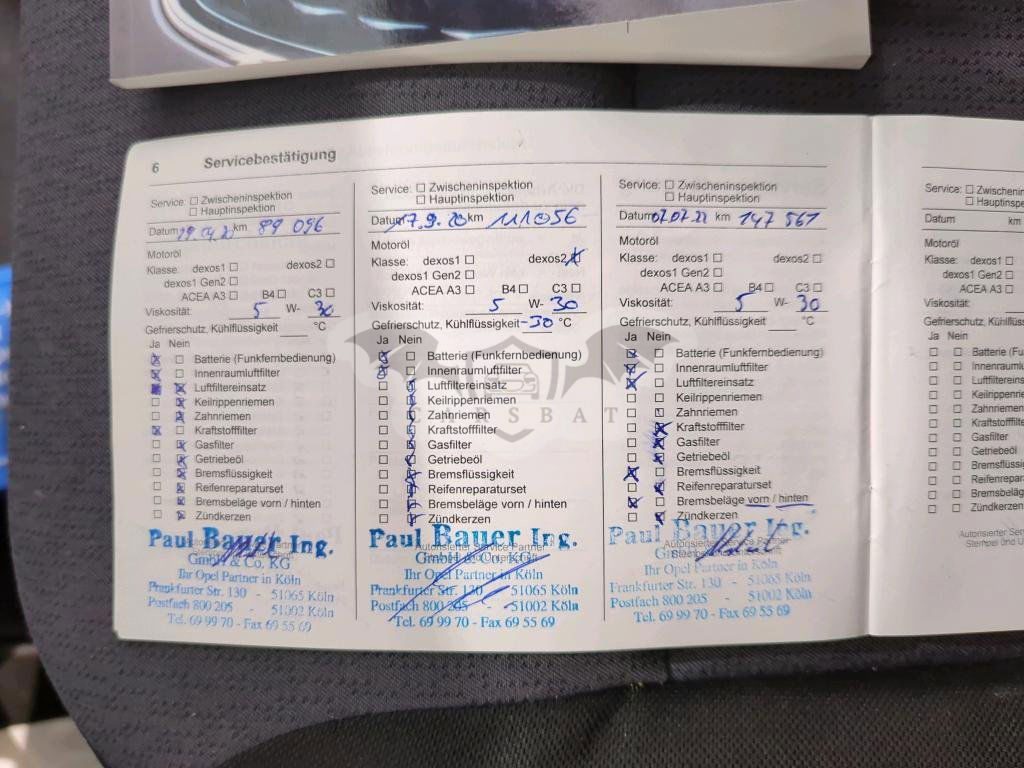 6 Servicebestätigung
Service: ☐ Zwischeninspektion
☐ Hauptinspektion
Datum km 89 096
Motoröl
Klasse: dexos1 ☐ dexos2 ☐
dexos1 Gen2 ☐
ACEA A3 ☐ B4 ☐ C3 ☐
Viskosität: 5 W- 30
Gefrierschutz, Kühlflüssigkeit °C
Ja Nein
Batterie (Funkfernbedienung)
Innenraumluftfilter
Luftfiltereinsatz
Keilrippenriemen
Zahnriemen
Kraftstofffilter
Gasfilter
Getriebeöl
Bremsflüssigkeit
Reifenreparaturset
Bremsbeläge vorn / hinten
Zündkerzen
Paul Bauer Ing.
GmbH & Co. KG
Ihr Opel Partner in Köln
Frankfurter Str. 130 - 51065 Köln
Postfach 800 205 - 51002 Köln
Tel. 69 99 70 - Fax 69 55 69
Service: ☐ Zwischeninspektion
☐ Hauptinspektion
Datum 17.9.20 km 111056
Motoröl
Klasse: dexos1 ☐ dexos2
dexos1 Gen2 ☐
ACEA A3 ☐ B4 ☐ C3 ☐
Viskosität: 5 W- 30
Gefrierschutz, Kühlflüssigkeit -30 °C
Ja Nein
Batterie (Funkfernbedienung)
Innenraumluftfilter
Luftfiltereinsatz
Keilrippenriemen
Zahnriemen
Kraftstofffilter
Gasfilter
Getriebeöl
Bremsflüssigkeit
Reifenreparaturset
Bremsbeläge vorn / hinten
Zündkerzen
Autorisierter Service Partner
Paul Bauer Ing.
GmbH & Co. KG
Ihr Opel Partner in Köln
Frankfurter Str. 130 - 51065 Köln
Postfach 800 205 - 51002 Köln
Tel. 69 99 70 - Fax 69 55 69
Service: ☐ Zwischeninspektion
☐ Hauptinspektion
Datum 07.07.22 km 147 561
Motoröl
Klasse: dexos1 ☐ dexos2 ☐
dexos1 Gen2 ☐
ACEA A3 ☐ B4 ☐ C3 ☐
Viskosität: 5 W- 30
Gefrierschutz, Kühlflüssigkeit °C
Ja Nein
Batterie (Funkfernbedienung)
Innenraumluftfilter
Luftfiltereinsatz
Keilrippenriemen
Zahnriemen
Kraftstofffilter
Gasfilter
Getriebeöl
Bremsflüssigkeit
Reifenreparaturset
Bremsbeläge vorn / hinten
Zündkerzen
Autorisierter Service Partner
Paul Bauer Ing.
GmbH & Co. KG
Ihr Opel Partner in Köln
Frankfurter Str. 130 - 51065 Köln
Postfach 800 205 - 51002 Köln
Tel. 69 99 70 - Fax 69 55 69
Service: ☐ Zwischeninspektion
☐ Hauptinspektion
Datum km
Motoröl
Klasse: dexos1 ☐
dexos1 Gen2 ☐
ACEA A3 ☐
Viskosität:
Gefrierschutz, Kühlflüssi
Ja Nein
Batterie (Funkf
Innenraumluf
Luftfiltereinsatz
Keilrippenriemen
Zahnriemen
Kraftstofffilter
Gasfilter
Getriebeöl
Bremsflüssigkeit
Reifenreparatu
Bremsbeläge
Zündkerzen
Autorisierter Se
Stempel und U
CARSBAT